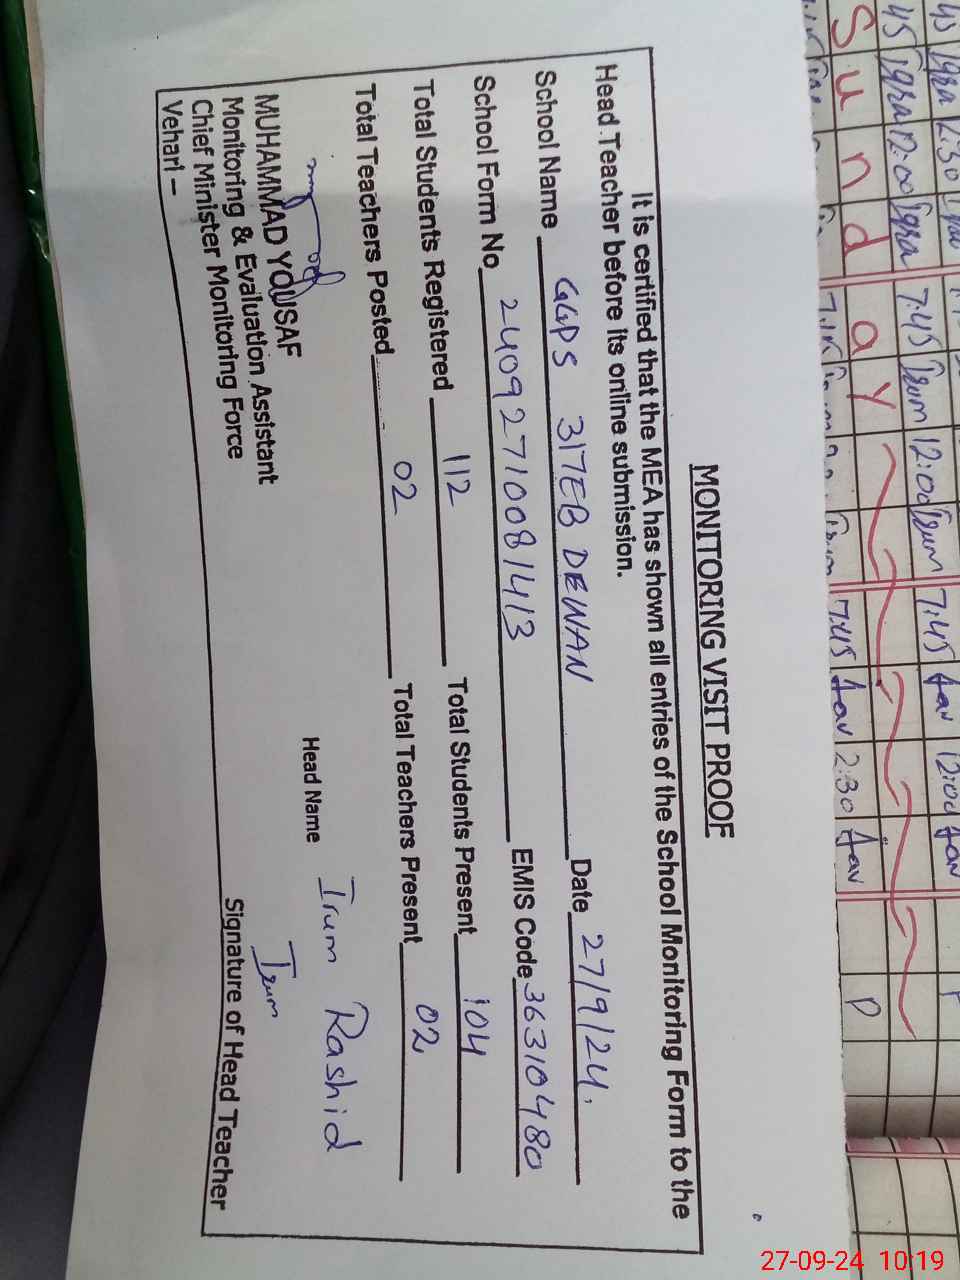 MONITORING VISIT PROOF
It is certified that the MEA has shown all entries of the School Monitoring Form to the
Head Teacher before its online submission.
School Name GGPS 317EB DEWAN Date 27/9/24.
School Form No 24092710081413 EMIS Code 36310480
Total Students Registered 112 Total Students Present 104
Total Teachers Posted 02 Total Teachers Present 02
Head Name Irum Rashid
MUHAMMAD YOUSAF
Monitoring & Evaluation Assistant
Chief Minister Monitoring Force
Vehari –
Irum
Signature of Head Teacher
45 Iqra 2:30
45 Iqra 12:00 Iqra 7:45 Irum 12:00 Irum 7:45 12:00
Sunday
7:45 2:30 P
27-09-24 10:19